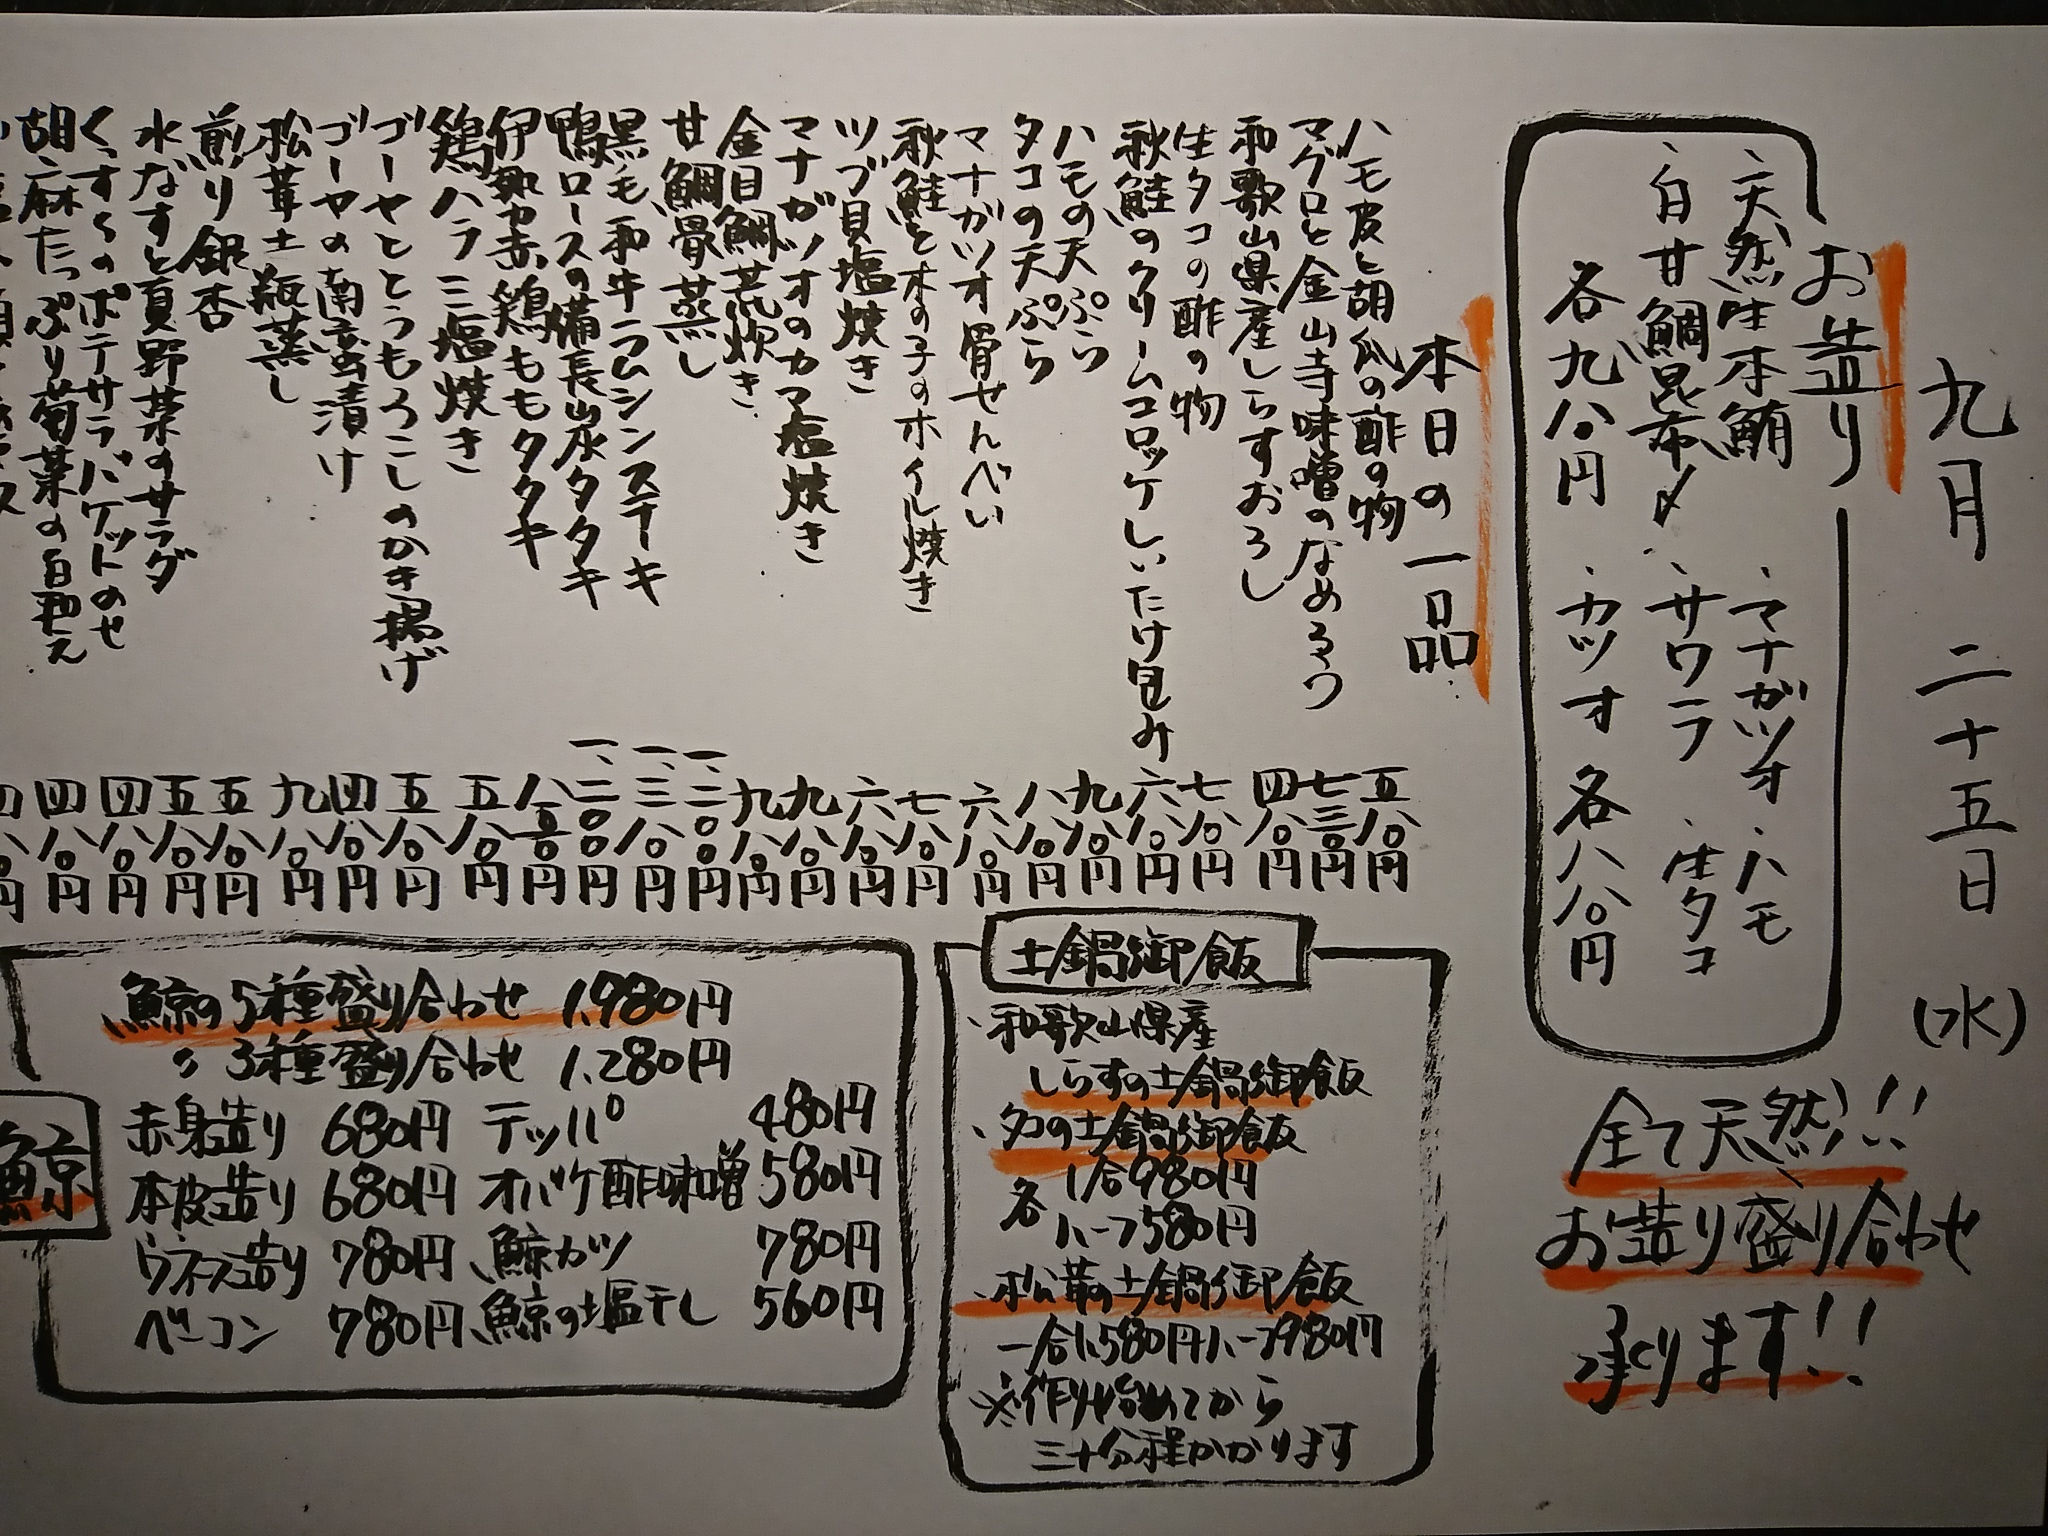 九月二十五日(水)
お造り
、天然生本鮪
、白甘鯛昆布〆
各九八〇円
、マナガツオ、ハモ
、サワラ、生タコ
、カツオ 各八八〇円
全て天然!!
お造り盛り合わせ
承ります!!
本日の一品
ハモ皮と胡瓜の酢の物 五八〇円
マグロと金山寺味噌のなめろう 七三〇円
和歌山県産しらすおろし 四八〇円
生タコの酢の物 七八〇円
秋鮭のクリームコロッケしいたけ包み 六八〇円
ハモの天ぷら 九八〇円
タコの天ぷら 八八〇円
マナガツオ骨せんべい 六八〇円
秋鮭と木の子のホイル焼き 七八〇円
ツブ貝塩焼き 六八〇円
マナガツオのカマ塩焼き 九八〇円
金目鯛荒炊き 九八〇円
甘鯛骨蒸し 一、二〇〇円
黒毛和牛ラムシンステーキ 一、三八〇円
鴨ロースの備長炭タタキ 一、二〇〇円
伊勢赤鶏ももタタキ 八五〇円
鶏ハラミ塩焼き 五八〇円
ゴーヤととうもろこしのかき揚げ 五八〇円
ゴーヤの南蛮漬け 四八〇円
松茸土瓶蒸し 九八〇円
煎り銀杏 五八〇円
水なすと夏野菜のサラダ 五八〇円
くずくずのポテサラバケットのせ 四八〇円
胡麻たっぷり菊菜の白和え 四八〇円
四八〇円
土鍋御飯
、和歌山県産
しらすの土鍋御飯
、タコの土鍋御飯
各 1合980円
ハーフ580円
、松茸の土鍋御飯
一合1,580円ハーフ980円
※作り始めてから
三十分程かかります
鯨
、鯨の5種盛り合わせ 1,980円
〃 3種盛り合わせ 1,280円
赤身造り 680円 テッパ 480円
本皮造り 680円 オバケ酢味噌 580円
ウネス造り 780円 、鯨カツ 780円
ベーコン 780円 、鯨の塩干し 560円